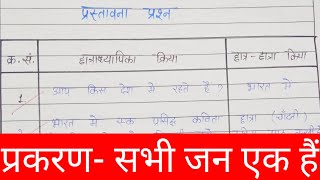 प्रस्तावना प्रश्न
क्र.सं. छात्राध्यापिका क्रिया छात्र-छात्रा क्रिया
1 आप किस देश में रहते हैं? भारत में
भारत में एक प्रसिद्ध कविता छात्रा
प्रकरण- सभी जन एक हैं